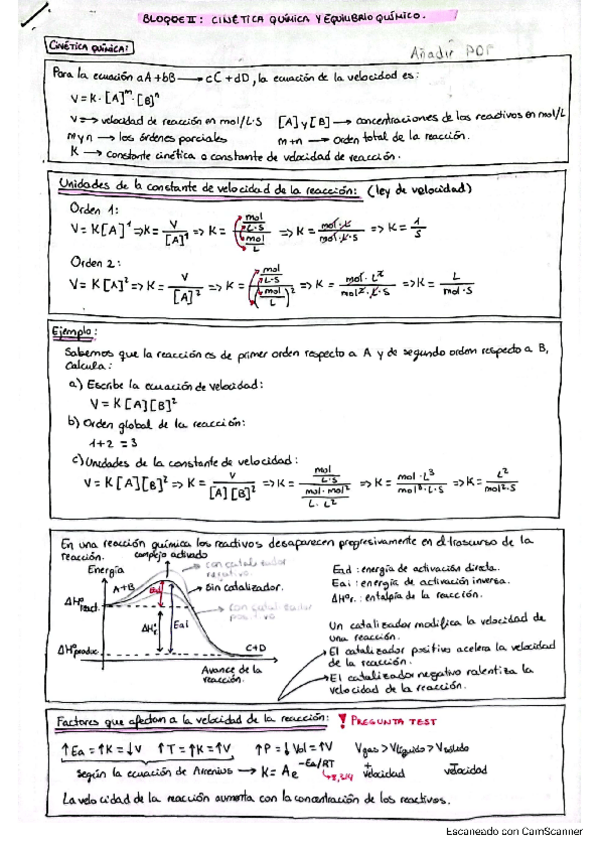 BLOQUE II: CINÉTICA QUÍMICA Y EQUILIBRIO QUÍMICO.
CINÉTICA QUÍMICA:
Añadir PDF
Para la ecuación aA+bB → cC+dD, la ecuación de la velocidad es:
V=K·[A]^m·[B]^n
V → velocidad de reacción en mol/L·S [A] y [B] → concentraciones de los reactivos en mol/L
m y n → los órdenes parciales m+n → orden total de la reacción.
K → constante cinética o constante de velocidad de reacción.
Unidades de la constante de velocidad de la reacción: (ley de velocidad)
Orden 1:
V=K[A]^1 => K = V/[A]^1 => K = (mol/L·S)/(mol/L) => K = mol·L/mol·L·S => K = 1/S
Orden 2:
V=K[A]^2 => K = V/[A]^2 => K = (mol/L·S)/(mol/L)^2 => K = mol·L^2/mol^2·L·S => K = L/mol·S
Ejemplo:
Sabemos que la reacción es de primer orden respecto a A y de segundo orden respecto a B,
Calcula:
a) Escribe la ecuación de velocidad:
V=K[A][B]^2
b) Orden global de la reacción:
1+2=3
c) Unidades de la constante de velocidad:
V=K[A][B]^2 => K = V/[A][B]^2 => K = (mol/L·S)/(mol·mol^2/L·L^2) => K = mol·L^3/mol^3·L·S => K = L^2/mol^2·S
En una reacción química los reactivos desaparecen progresivamente en el trascurso de la
reacción.
complejo activado
Energía
con catalizador
negativo
A+B
Ead
sin catalizador.
ΔHºreact.
con catalizador
positivo
ΔHºr
Eai
ΔHºproduc.
C+D
Avance de la
reacción.
Ead: energía de activación directa.
Eai: energía de activación inversa.
ΔHºr.: entalpía de la reacción.
Un catalizador modifica la velocidad de
una reacción.
→ El catalizador positivo acelera la velocidad
de la reacción.
→ El catalizador negativo ralentiza la
velocidad de la reacción.
Factores que afectan a la velocidad de la reacción: ! PREGUNTA TEST
↑Ea = ↑K = ↓V ↑T = ↑K = ↑V ↑P = ↓Vol = ↑V Vgas > Vlíquido > Vsólido
Según la ecuación de Arrenius → K = Ae^-Ea/RT → 8,314 + velocidad - velocidad
La velocidad de la reacción aumenta con la concentración de los reactivos.
Escaneado con CamScanner